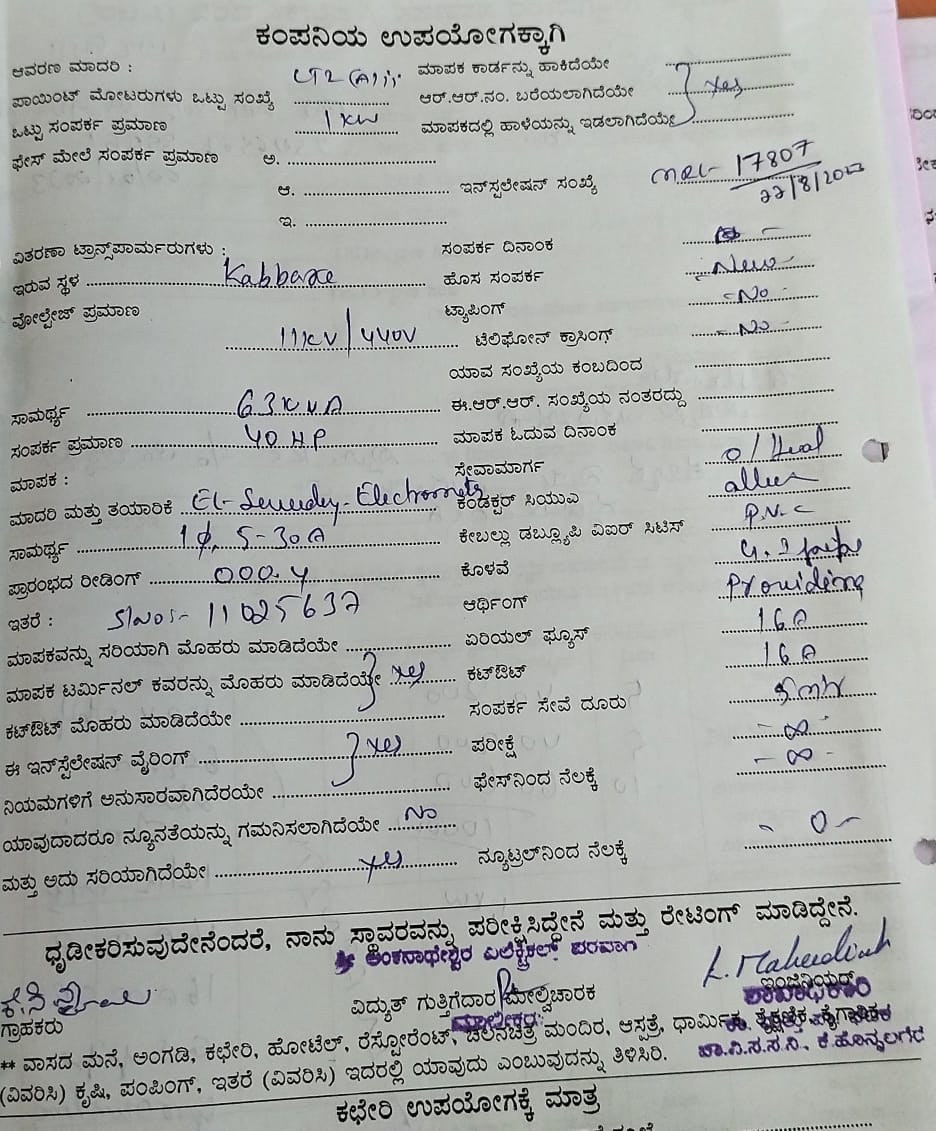 ಕಂಪನಿಯ ಉಪಯೋಗಕ್ಕಾಗಿ
ಆವರಣ ಮಾದರಿ : LT2 (A)ii ಮಾಪಕ ಕಾರ್ಡನ್ನು ಹಾಕಿದೆಯೇ
ಪಾಯಿಂಟ್ ಮೋಟರುಗಳು ಒಟ್ಟು ಸಂಖ್ಯೆ ಆರ್.ಆರ್.ನಂ. ಬರೆಯಲಾಗಿದೆಯೇ Yes
ಒಟ್ಟು ಸಂಪರ್ಕ ಪ್ರಮಾಣ 1 KW ಮಾಪಕದಲ್ಲಿ ಹಾಳೆಯನ್ನು ಇಡಲಾಗಿದೆಯೇ
ಫೇಸ್ ಮೇಲೆ ಸಂಪರ್ಕ ಪ್ರಮಾಣ ಅ.
ಆ. ಇನ್‌ಸ್ಪಲೇಷನ್ ಸಂಖ್ಯೆ 17807
ಇ. 22/8/20
ವಿತರಣಾ ಟ್ರಾನ್ಸ್‌ಪಾರ್ಮರುಗಳು : ಸಂಪರ್ಕ ದಿನಾಂಕ
ಇರುವ ಸ್ಥಳ Kabbare ಹೊಸ ಸಂಪರ್ಕ New
ವೋಲ್ಟೇಜ್ ಪ್ರಮಾಣ ಟ್ಯಾಪಿಂಗ್ - No -
11KV/440V ಟೆಲಿಫೋನ್ ಕ್ರಾಸಿಂಗ್ - No -
ಯಾವ ಸಂಖ್ಯೆಯ ಕಂಬದಿಂದ
ಸಾಮರ್ಥ್ಯ 63KVA ಈ.ಆರ್.ಆರ್. ಸಂಖ್ಯೆಯ ನಂತರದ್ದು
ಸಂಪರ್ಕ ಪ್ರಮಾಣ 40 HP ಮಾಪಕ ಓದುವ ದಿನಾಂಕ
ಮಾಪಕ : ಸೇವಾಮಾರ್ಗ O/Head
ಮಾದರಿ ಮತ್ತು ತಯಾರಿಕೆ ಕಂಡಕ್ಟರ್ ಸಿಯುವಿ
ಸಾಮರ್ಥ್ಯ 1φ, 5-30A ಕೇಬಲ್ಲು ಡಬ್ಲ್ಯೂಪಿ ವಿಐಆರ್ ಸಿಟಿಸ್ P.V.C
ಪ್ರಾರಂಭದ ರೀಡಿಂಗ್ 000.4 ಕೊಳವೆ
ಇತರೆ : Slno:- 11025637 ಆರ್ಥಿಂಗ್ Providing
ಮಾಪಕವನ್ನು ಸರಿಯಾಗಿ ಮೊಹರು ಮಾಡಿದೆಯೇ ಏರಿಯಲ್ ಫ್ಯೂಸ್ 16A
ಮಾಪಕ ಟರ್ಮಿನಲ್ ಕವರನ್ನು ಮೊಹರು ಮಾಡಿದೆಯೇ Yes ಕಟ್‌ಔಟ್ 16A
ಕಟ್‌ಔಟ್ ಮೊಹರು ಮಾಡಿದೆಯೇ ಸಂಪರ್ಕ ಸೇವೆ ದೂರು
ಈ ಇನ್‌ಸ್ಟೆಲೇಷನ್ ವೈರಿಂಗ್ Yes ಪರೀಕ್ಷೆ - ∞ -
ನಿಯಮಗಳಿಗೆ ಅನುಸಾರವಾಗಿದೆರಯೇ ಫೇಸ್‌ನಿಂದ ನೆಲಕ್ಕೆ - ∞ -
ಯಾವುದಾದರೂ ನ್ಯೂನತೆಯನ್ನು ಗಮನಿಸಲಾಗಿದೆಯೇ No
ಮತ್ತು ಅದು ಸರಿಯಾಗಿದೆಯೇ Yes ನ್ಯೂಟ್ರಲ್‌ನಿಂದ ನೆಲಕ್ಕೆ - 0 -
ಧೃಡೀಕರಿಸುವುದೇನೆಂದರೆ, ನಾನು ಸ್ಥಾವರವನ್ನು ಪರೀಕ್ಷಿಸಿದ್ದೇನೆ ಮತ್ತು ರೇಟಿಂಗ್ ಮಾಡಿದ್ದೇನೆ.
ಅಂಕನಾಥೇಶ್ವರ ಎಲೆಕ್ಟ್ರಿಕಲ್ ಪರವಾಗಿ
ಗ್ರಾಹಕರು ವಿದ್ಯುತ್ ಗುತ್ತಿಗೆದಾರ ಮೇಲ್ವಿಚಾರಕ ಇಂಜಿನಿಯರ್
ಮಾಲೀಕರು ಶಾಖಾಧಿಕಾರಿ
** ವಾಸದ ಮನೆ, ಅಂಗಡಿ, ಕಛೇರಿ, ಹೋಟೆಲ್, ರೆಸ್ಟೋರೆಂಟ್, ಚಲನಚಿತ್ರ ಮಂದಿರ, ಆಸ್ಪತ್ರೆ, ಧಾರ್ಮಿಕ, ಶೈಕ್ಷಣಿಕ, ಕೈಗಾರಿಕೆ
(ವಿವರಿಸಿ) ಕೃಷಿ, ಪಂಪಿಂಗ್, ಇತರೆ (ವಿವರಿಸಿ) ಇದರಲ್ಲಿ ಯಾವುದು ಎಂಬುವುದನ್ನು ತಿಳಿಸಿರಿ. ಚಾ.ವಿ.ಸ.ಸ.ನಿ., ಕೆ.ಹೊನ್ನಲಗೆರೆ
ಕಛೇರಿ ಉಪಯೋಗಕ್ಕೆ ಮಾತ್ರ